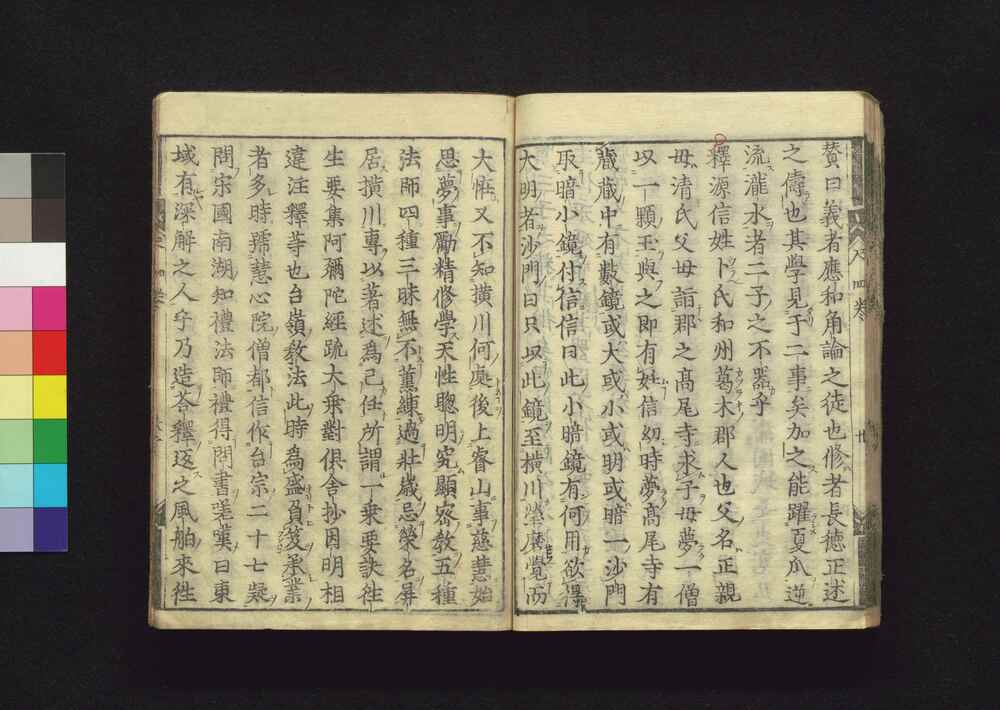 賛曰義者應和角論之徒也修者長德正述
之儔也其學見于二事矣加之能躍夏瓜逆
流瀧水者二子之不器乎
釋源信姓卜氏和州葛木郡人也父名正親
母清氏父母詣郡之髙尾寺求子母夢一僧
以一顆玉與之即有妊信幼時夢髙尾寺有
藏藏中有數鏡或大或小或明或暗一沙門
取暗小鏡付信信曰此小暗鏡有何用欲得
大明者沙門曰只以此鏡至横川瑩磨覺而
大恠又不知横川何處後上睿山事慈慧始
思夢事勵精修學天性聰明究顯密教五種
法師四種三昧無不薫練過壯歳忌榮名屏
居横川專以著述爲己任所謂一乗要訣徃
生要集阿彌陀經䟽大乗對倶舎抄因明相
違注釋等也台嶺教法此時爲盛負笈承業
者多時號慧心院僧都信作台宗二十七疑
問宋國南湖知禮法師禮得問書嗟嘆曰東
域有深解之人乎乃造荅釋返之風舶來徃